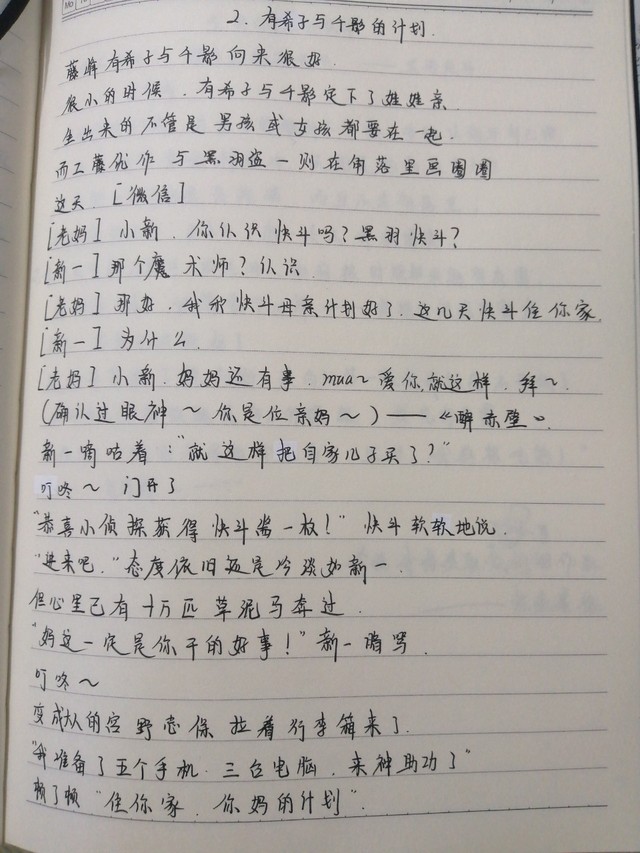 2. 有希子与千影的计划.
藤峰有希子与千影向来很好.
很小的时候. 有希子与千影定下了娃娃亲.
生出来的不管是男孩或女孩都要在一起.
而工藤优作与黑羽盗一则在角落里画圈圈
这天. [微信]
[老妈] 小新. 你认识快斗吗? 黑羽快斗?
[新一] 那个魔术师? 认识.
[老妈] 那好. 我和快斗母亲计划好了. 这几天快斗住你家.
[新一] 为什么.
[老妈] 小新. 妈妈还有事. mua~爱你,就这样. 拜~.
(确认过眼神~你是位亲妈~)——《醉赤壁》.
新一嘀咕着:"就这样把自家儿子买了?"
叮咚~ 门开了
"恭喜小侦探获得快斗酱一枚!" 快斗软软地说.
"进来吧."态度依旧冷淡如新一.
但心里已有十万匹草泥马奔过.
"妈这一定是你干的好事!"新一暗骂.
叮咚~
变成大人的宫野志保拉着行李箱来了.
"我准备了五个手机. 三台电脑. 来神助功了"
顿了顿 "住你家. 你妈的计划".